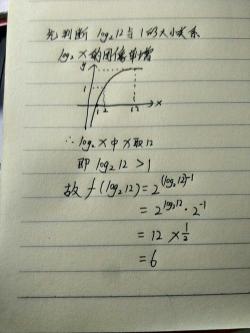 先判断 log₂12与1的大小关系
log₂ x的图像单增
y
1
1 2 12 x
∴ log₂ x 中 x取12
即 log₂12 > 1
故 f(log₂12) = 2^(log₂12)-1
= 2^log₂12 · 2^-1
= 12 × 1/2
= 6